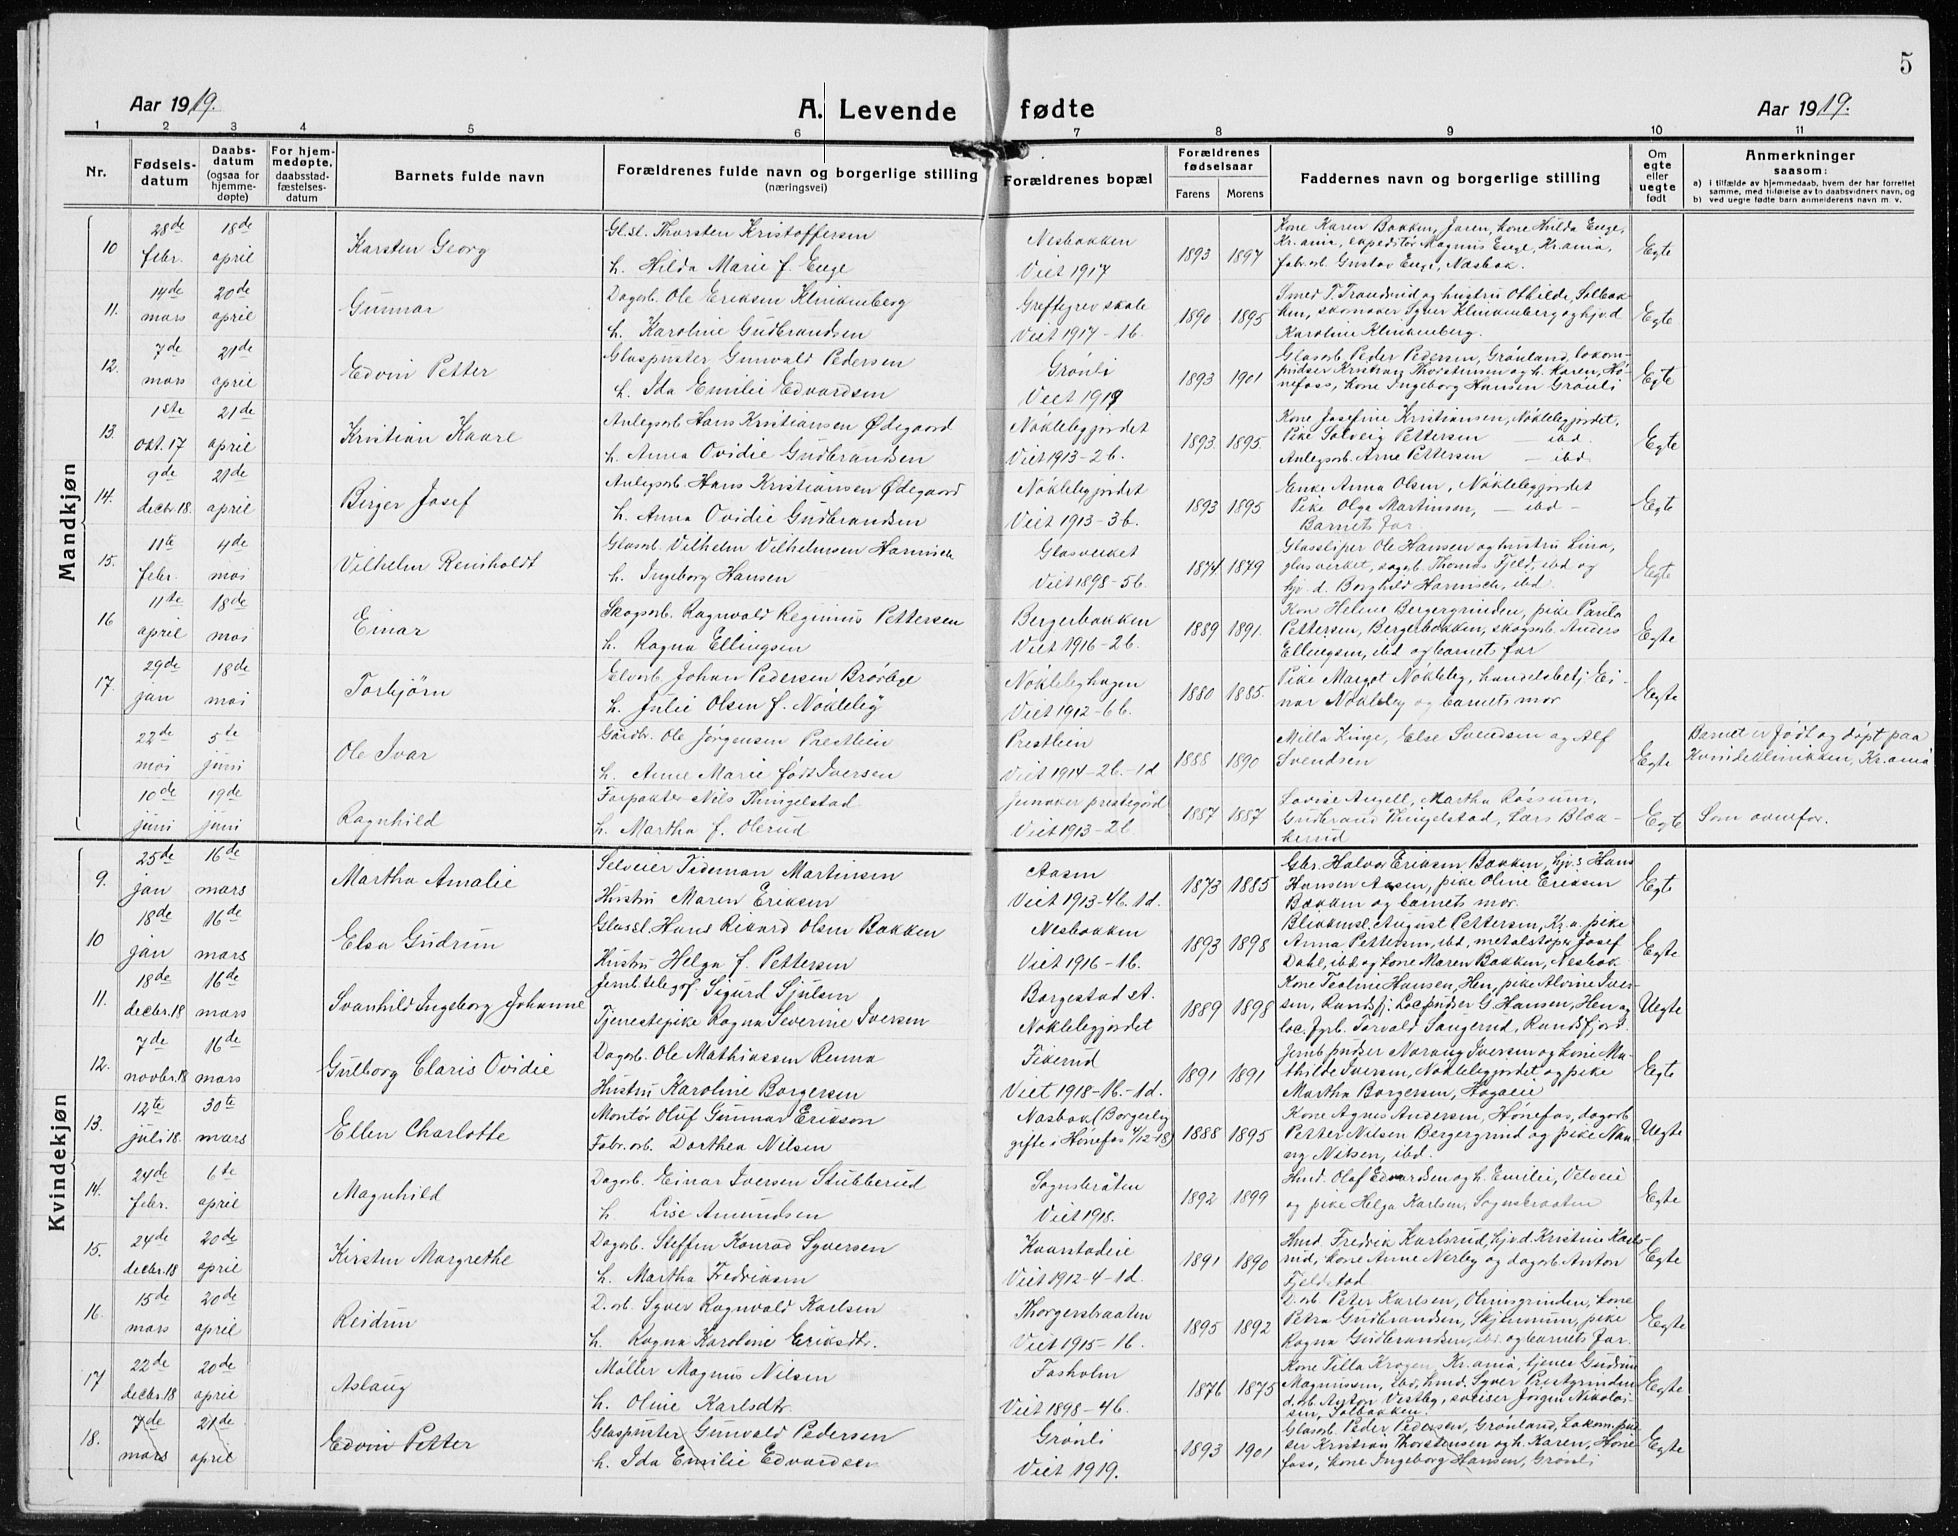 5
Aar 1919.
A. Levende fødte
Aar 1919.
1 2 3 4 5 6 7 8 9 10 11
Nr.
Fødsels-
datum
Daabs-
datum
(ogsaa for
hjemme-
døpte)
For hjem-
medøpte,
daabsstad-
fæstelses-
datum
Barnets fulde navn
Forældrenes fulde navn og borgerlige stilling
(næringsvei)
Forældrenes bopæl
Forældrenes
fødselsaar
Farens Morens
Faddernes navn og borgerlige stilling
Om
egte
eller
uegte
født
Anmerkninger
saasom:
a) i tilfælde av hjemmedaab, hvem der har forrettet
samme, med tilføielse av to daabsvidners navn, og
b) ved uegte fødte barn anmelderens navn m. v.
Mandkjøn
10 28de febr. 18de april
Karsten Georg
Glsl. Thorsten Kristoffersen
h. Hilda Marie f. Enge
Nesbakken
Viet 1917
1893 1897
Kone Karen Bakken, Jaren, kone Hulda Enge,
Kr.ania, expeditør Magnus Enge, Kr.ania,
fabr.arb. Gustav Enge, Næsbak.
Egte
11. 14de mars 20de april
Gunnar
Dagarb. Ole Eriksen Klinkenberg
h. Karoline Gudbrandsen
Greftegrev skole
Viet 1917-1b.
1890 1895
Smed T. Trandrud og hustru Othilde, Solbak-
ken, skomaker Syver Klinkenberg og hj.d
Karoline Klinkenberg.
Egte
12. 7de mars 21de april
Edvin Petter
Glaspuster Gunvald Pedersen
h. Ida Emilie Edvardsen
Grønli
Viet 1919
1893 1901
Glasarb. Peder Pedersen, Grønland, lokom-
pudser Kristian Thorstensen og h. Karen, Hø-
nefoss, kone Ingeborg Hansen Grønli
Egte
13. 1ste okt. 17 21de april
Kristian Kaare
Anlegsarb Hans Kristiansen Ødegaard
h. Anna Ovidie Gudbrandsen
Nøklebygjordet
Viet 1913-2b.
1893 1895
Kone Josefine Kristiansen, Nøklebygjordet,
Pike Solveig Pettersen — ibd.
Anlegsarb. Arne Pettersen — ibd.
Egte
14. 9de decbr. 18. 21de april
Birger Josef
Anlegsarb. Hans Kristiansen Ødegaard
h. Anna Ovidie Gudbrandsen
Nøklebygjordet
Viet 1913-3b.
1893 1895
Enke Anna Olsen, Nøklebygjordet
Pike Olga Martinsen, — ibd —
Barnets far.
Egte
15. 11te febr. 4de mai
Vilhelm Reinholdt
Glasarb. Vilhelm Vilhelmsen Harnisch
h. Ingeborg Hansen
Glasverket
Viet 1898-5b.
1874. 1879
Glassliper Ole Hansen og hustru Lina,
glasverket, dagarb. Thomas Fjeld, ibd og
hj. d. Borghild Harnisch, ibd.
Egte
16 11te april 18de mai
Einar
Skogsarb. Ragnvald Reginius Pettersen
h. Ragna Ellingsen
Bergerbakken
Viet 1916-2b.
1889 1891.
Kone Helene Bergergrinden, pike Paula
Pettersen, Bergerbakken, skogsarb Anders
Ellingsen, ibd og barnets far
Egte
17. 29de jan 18de mai
Torbjørn
Elvarb. Johan Pedersen Brørbye
h. Julie Olsen f. Nøkleby
Nøklebyhagen
Viet 1912-6b.
1880 1885.
Pike Margot Nøkleby, handelsbetj. Ei-
nar Nøkleby og barnets mor
Egte
22de mai 5te juni
Ole Ivar
Gaardbr. Ole Jørgensen Prestlien
h. Anne Marie født Iversen
Prestlien
Viet 1914-2b.-1d
1888 1890
Milla Kinge, Else Svendsen og Alf
Svendsen
Egte
Barnet er født og døpt paa
Kvindeklinikken, Kr.ania
10de juni 19de juni
Ragnhild
Forpakter Nils Thingelstad
h. Martha f. Olerud
Jevnaker prestegård
Viet 1913-2b.
1887 1887
Lovise Angell, Martha Røssum,
Gudbrand Thingelstad, Lars Blæk-
kerud
Egte
Som ovenfor.
Kvindekjøn
9. 25de jan 16de mars
Martha Amalie
Selveier Tideman Martinsen
Hustru Maren Eriksen
Aasen
Viet 1913-4b.1d.
1873 1885
Gbr. Halvor Eriksen Bakken, hj.s Hans
Hansen Aasen, pike Oline Eriksen
Bakken og barnets mor.
Egte
10 18de jan 16de mars
Elsa Gudrun
Glassl. Hans Rikard Olsen Bakken
Hustru Helga f. Pettersen
Nesbakken
Viet 1916-1b.
1893 1898
Blikkensl. August Pettersen, Kr.a. pike
Anna Pettersen, ibd, metalstøper Josef
Dahl, ibd og kone Maren Bakken, Nesbak
Egte
11. 18de decbr. 18 16de mars
Svanhild Ingeborg Johanne
Jernb.telegof. Sigurd Sjulsen
Tjenestepike Ragna Severine Iversen
Borgestad st.
Nøklebygjordet
1889 1898
Kone Teoline Hansen, Hen, pike Alvine Iver-
sen, Randsfj. Loc pudser G. Hansen, Hen og
loc. fyrb. Torvald Sangerud, Randsfjord.
Uegte
12. 7de novbr. 18 16de mars
Gulborg Claris Ovidie
Dagarb. Ole Mathiassen Renna
Hustru Karoline Borgersen
Fikerud
Viet 1918-1b.-1d.
1891 1891
Jernb pudser Narang Iversen og kone Ma-
thilde Iversen, Nøklebygjordet og pike
Martha Borgersen, Hagaeie
Egte
13. 12te juli 18. 30te mars
Ellen Charlotte
Montør Oluf Gunnar Erikson
Fabr. arb. Dorthea Nilsen
Nasbak (Borgerbg
gifte i Hønefos 4/12-18)
1888 1895
Kone Agnes Andersen, Hønefos, dagarb
Petter Nilsen Bergergrind og pike Nan-
ny Nilsen, ibd.
Uegte
14. 24de febr. 6te april
Magnhild
Dagarb. Einar Iversen Stubberud
h Lise Amundsen
Sognsbråten
Viet 1918.
1892 1899
Hmd. Olaf Edvardsen og h. Emilie, Velveie
og pike Helga Karlsen, Sognsbraaten
Egte
15. 24de decbr. 18 20de april
Kirsten Margrethe
Dagarb. Steffen Konrad Syversen
h. Martha Fredriksen
Kaarstadeie
Viet 1912-4-1d.
1891 1890
Hmd Fredrik Karlsrud, hj.d Kristine Karls-
rud, kone Anne Nerby og dagarb Anton
Fjeldstad
Egte
16. 15de mars 20de april
Reidun
D. arb. Syver Ragnvald Karlsen
h. Ragna Karoline Eriksdtr.
Thorgersbraaten
Viet 1915-1b.
1895 1892
D. arb. Peter Karlsen, Olmsgrinden, kone
Petra Gudbrandsen, Skjerumm, pike
Ragna Gudbrandsen, ibd. og barnets far.
Egte
17 22de decbr. 18 20de april
Aslaug
Møller Magnus Nilsen
h. Oline Karlsdtr.
Fosholm
Viet 1898-4b.
1876 1875
Kone Tilla Krogen, Kr.ania, tjener Gudrun
Magnussen, ibd, hmd. Syver Prestgrinden
d. arb. Anton Vestby, sveiser Jørgen Nikolai-
sen, Solbakken.
Egte
18. 7de mars 21de april
Edvin Petter
Glaspuster Gunvald Pedersen
h. Ida Emilie Edvardsen
Grønli
Viet 1919.
1893 1901
Glasarb. Peder Pedersen, Grønland, Lokom.pud-
ser Kristian Thorstensen og h. Karen, Høne-
foss, kone Ingeborg Hansen, Grønli
Egte